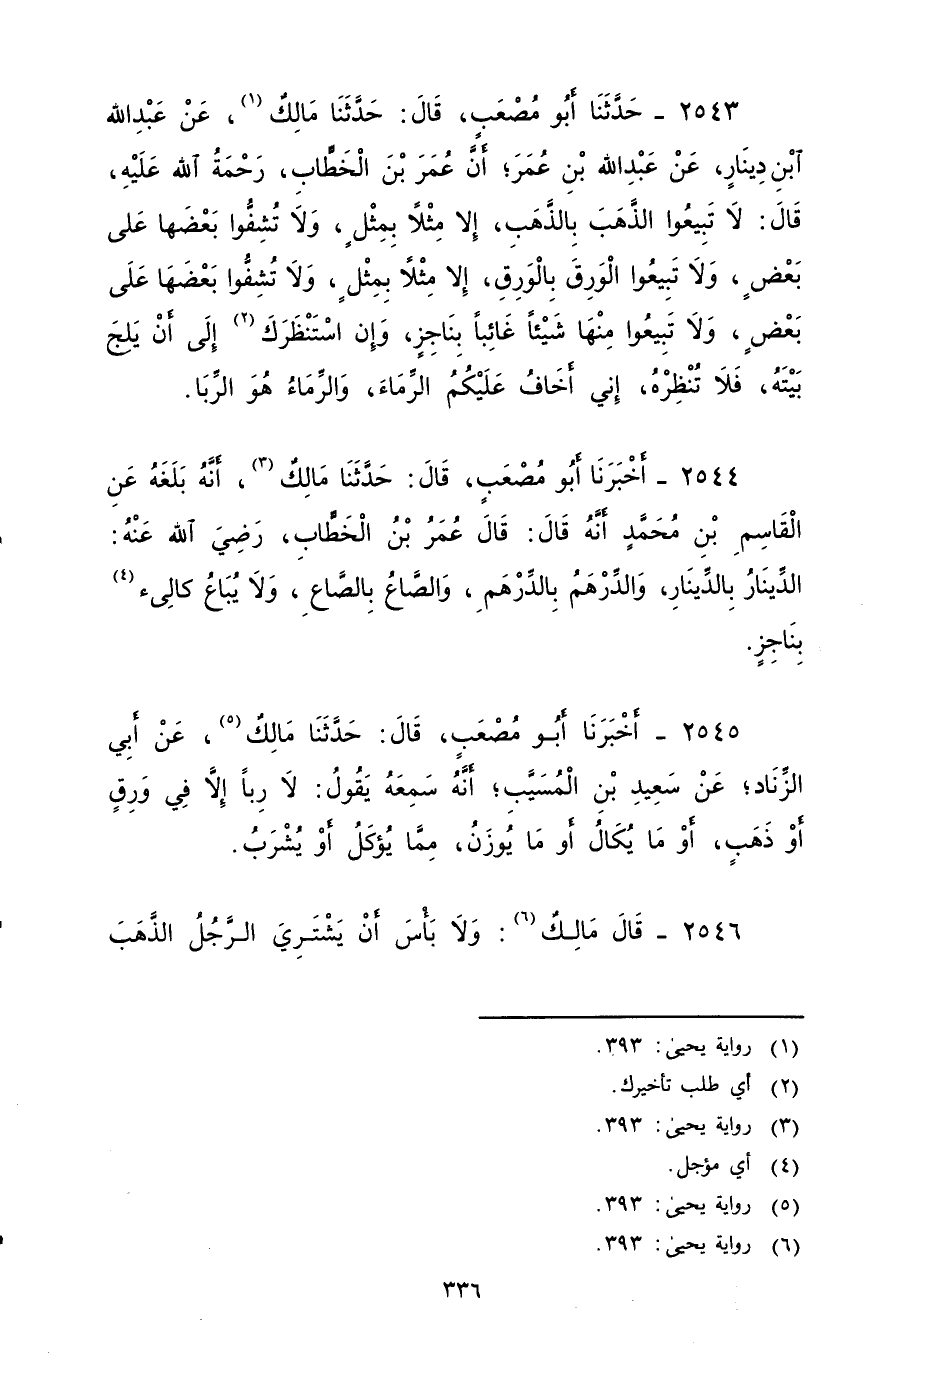 ٢٥٤٣ - حَدَّثَنَا أَبُو مُصْعَبٍ، قَالَ: حَدَّثَنَا مَالِكٌ (١)، عَنْ عَبْدِالله
آبْنِ دِينَارٍ، عَنْ عَبْدِالله بْنِ عُمَرَ؛ أَنَّ عُمَرَ بْنَ الْخَطَّاب، رَحْمَةُ آلله عَلَيْهِ،
قَالَ: لَا تَبِيعُوا الذَّهَبَ بِالذَّهَبِ، إِلا مِثْلًا بِمِثْلٍ، وَلَا تُشِفُّوا بَعْضَها عَلى
بَعْضٍ، وَلَا تَبِيعُوا الْوَرِقَ بِالْوَرِقِ، إِلا مِثْلًا بِمِثْلٍ، وَلَا تُشِفُّوا بَعْضَهَا عَلَى
بَعْضٍ، وَلَا تَبِيعُوا مِنْهَا شَيْئاً غَائِباً بِنَاجِزٍ، وَإِن اسْتَنْظَرَكَ (٢) إِلَى أَنْ يَلِجَ
بَيْتَهُ، فَلَا تُنْظِرْهُ، إِني أَخَافُ عَلَيْكُمُ الرِّمَاءَ، وَالرِّمَاءُ هُوَ الرِّبَا.
٢٥٤٤ - أَخْبَرَنَا أَبُو مُصْعَبٍ، قَالَ: حَدَّثَنَا مَالِكٌ (٣)، أَنَّهُ بَلَغَهُ عَنِ
الْقَاسِمِ بْنِ مُحَمَّدٍ أَنَّهُ قَالَ: قَالَ عُمَرُ بْنُ الْخَطَّاب، رَضِيَ آلله عَنْهُ:
الدِّينَارُ بِالدِّينَارِ، وَالدِّرْهَمُ بِالدِّرْهَمِ، وَالصَّاعُ بِالصَّاعِ، وَلَا يُبَاعُ كالِىء (٤)
بِنَاجِزٍ.
٢٥٤٥ - أَخْبَرَنَا أَبُو مُصْعَبٍ، قَالَ: حَدَّثَنَا مَالِكٌ (٥)، عَنْ أَبِي
الزِّنَاد؛ عَنْ سَعِيدِ بْنِ الْمُسَيَّبِ؛ أَنَّهُ سَمِعَهُ يَقُولُ: لَا رِباً إِلَّا فِي وَرِقٍ
أَوْ ذَهَبٍ، أَوْ مَا يُكَالُ أَو مَا يُوزَنُ، مِمَّا يُؤكَلُ أَوْ يُشْرَبُ.
٢٥٤٦ - قَالَ مَالِكٌ (٦): وَلَا بَأْسَ أَنْ يَشْتَرِيَ الرَّجُلُ الذَّهَبَ
(١) رواية يحيىٰ: ٣٩٣.
(٢) أي طلب تأخيرك.
(٣) رواية يحيىٰ: ٣٩٣.
(٤) أي مؤجل.
(٥) رواية يحيىٰ: ٣٩٣.
(٦) رواية يحيىٰ: ٣٩٣.
٣٣٦